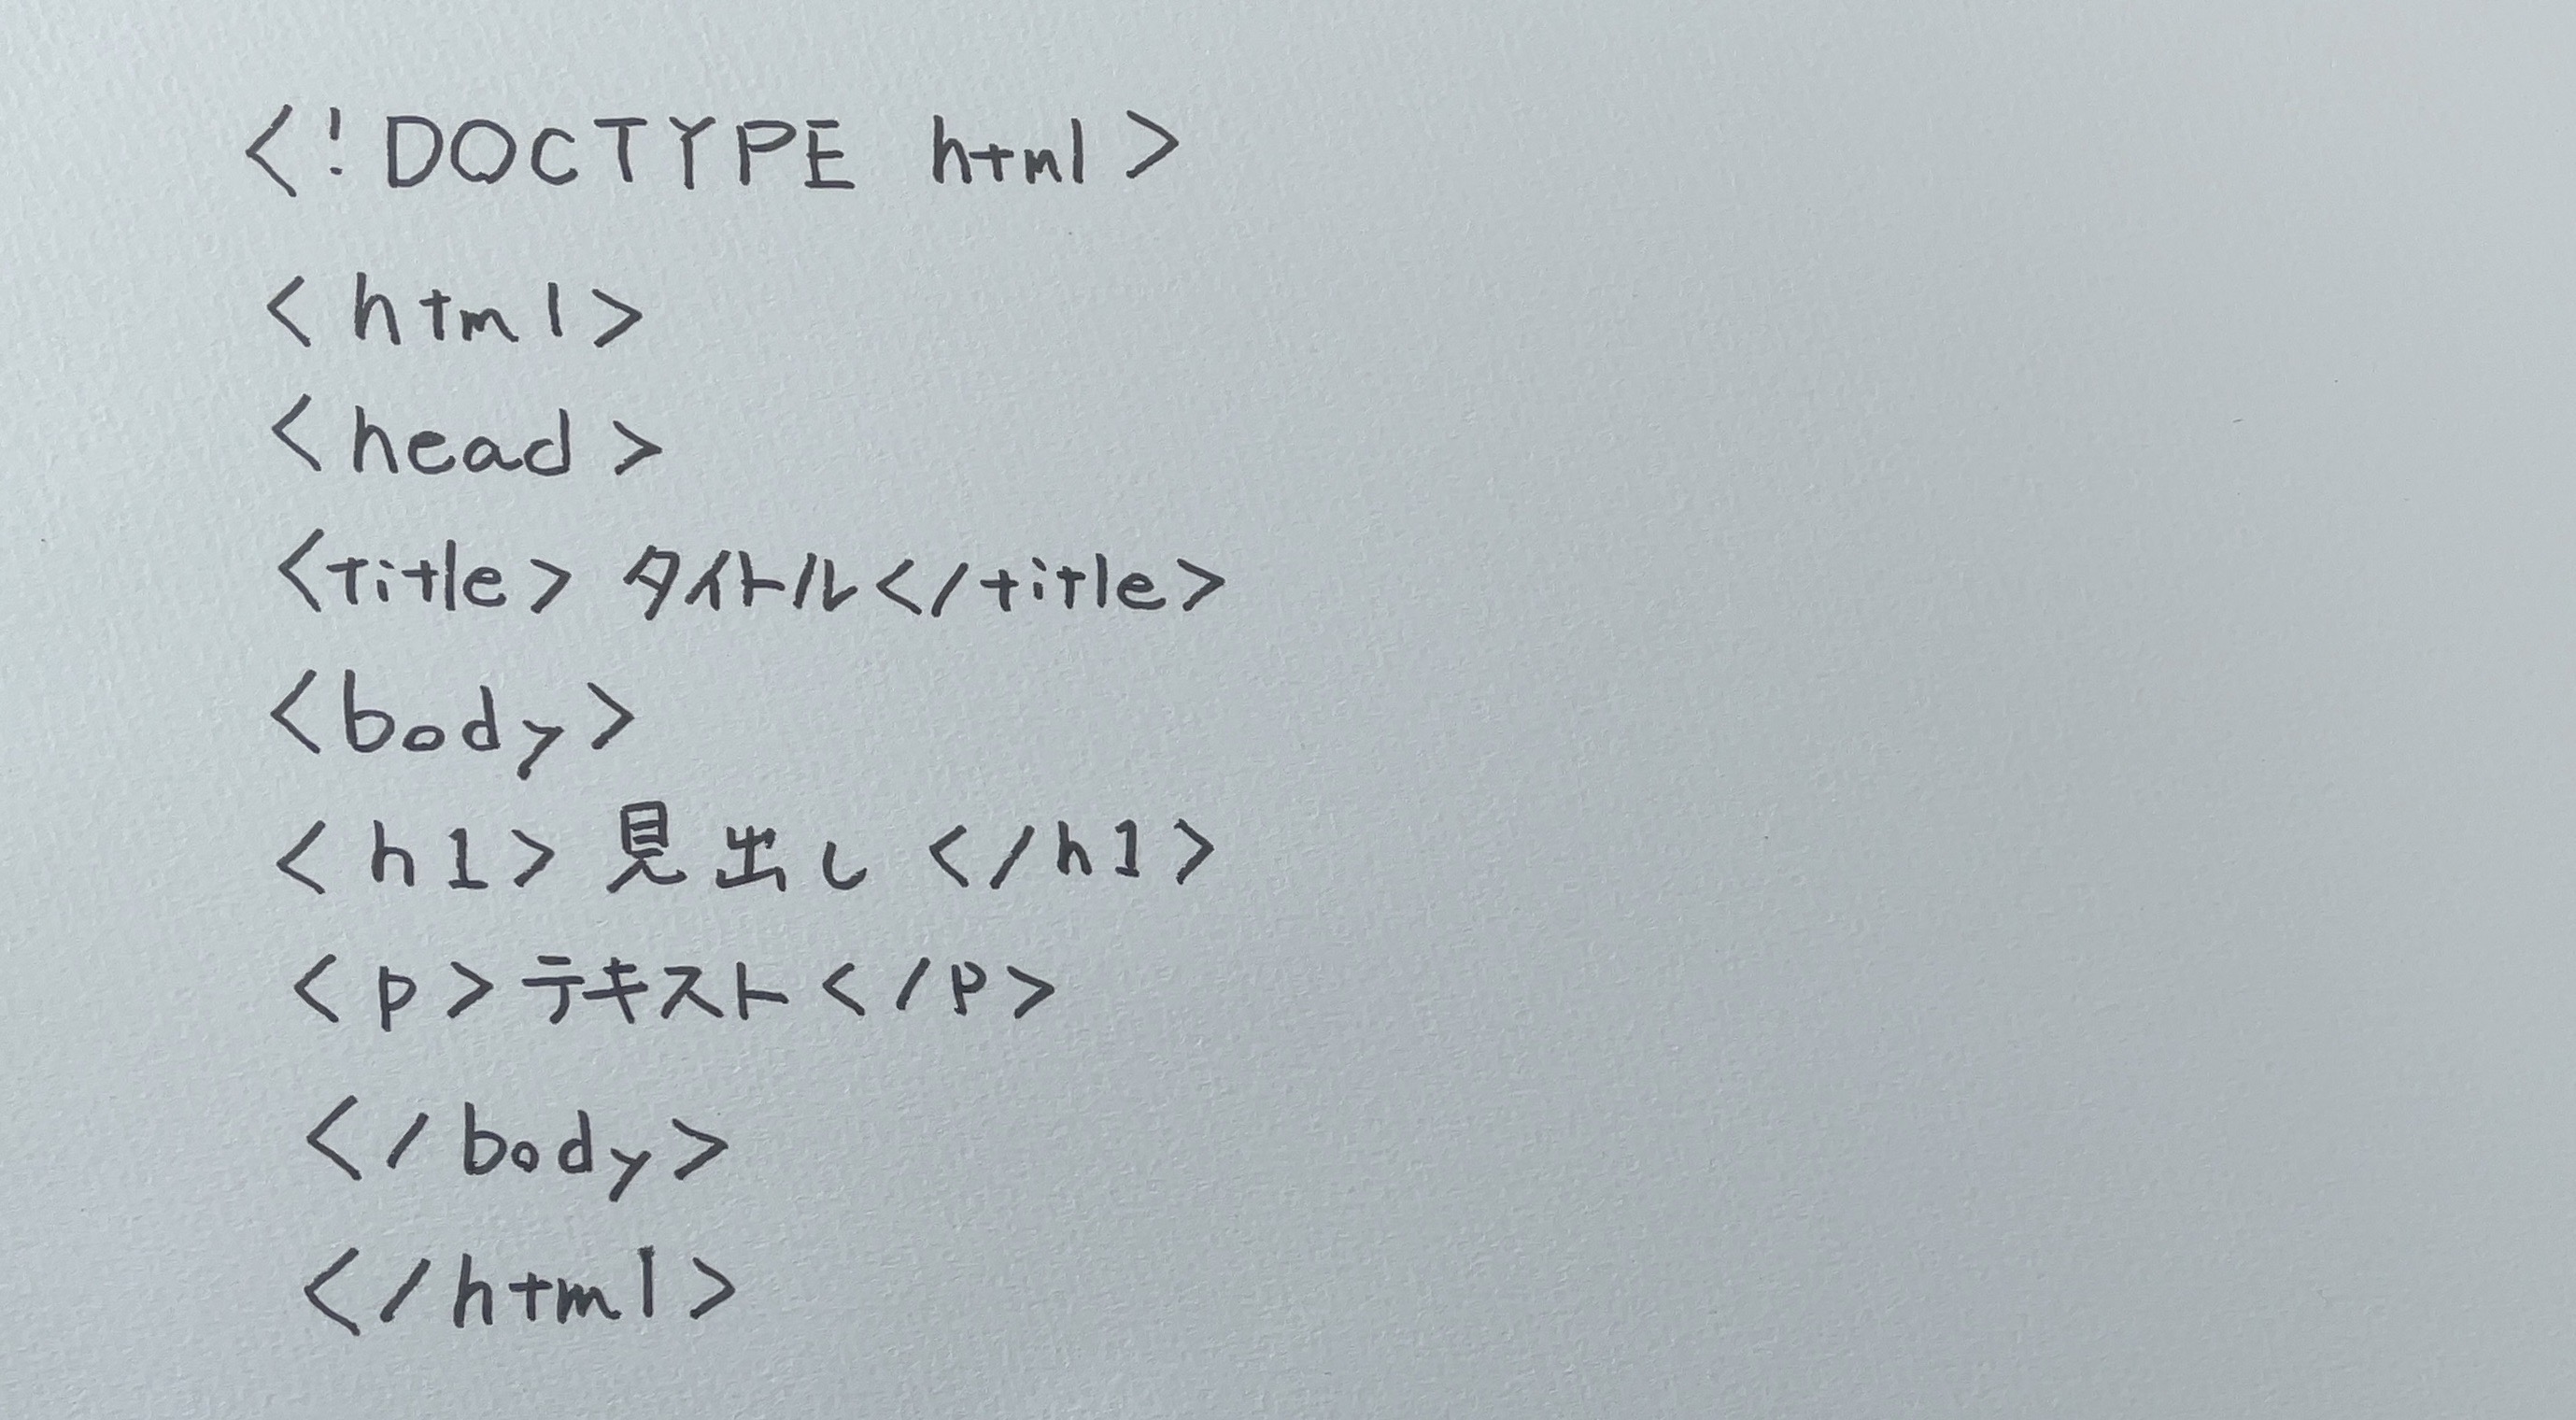 <!DOCTYPE html>
<html>
<head>
<title>タイトル</title>
<body>
<h1>見出し</h1>
<p>テキスト</p>
</body>
</html>